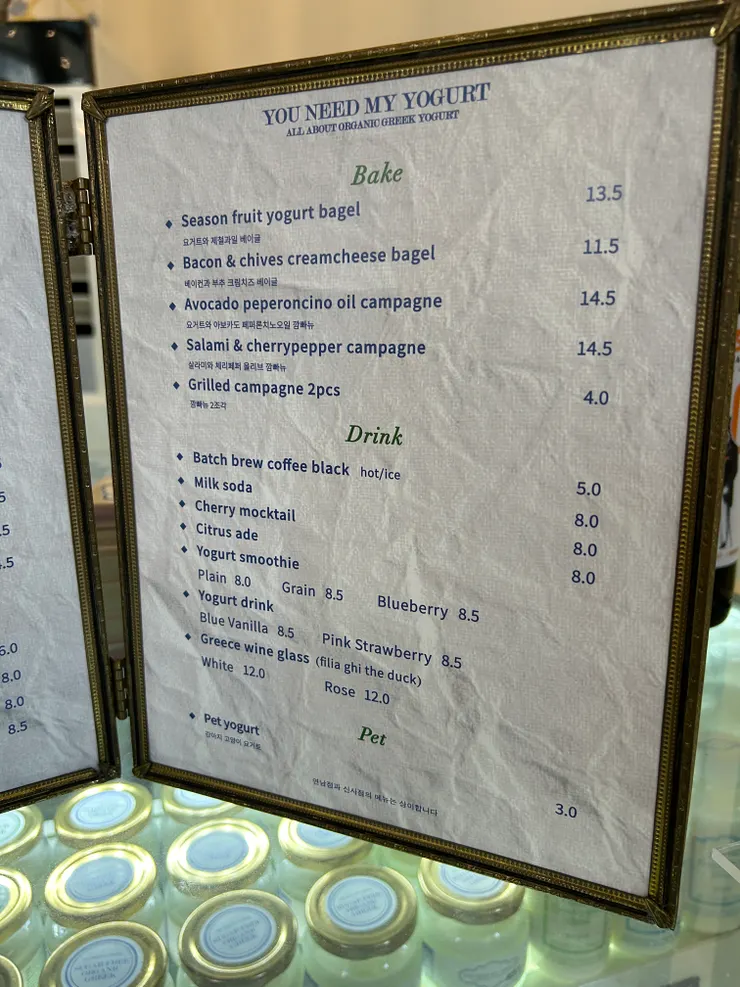 YOU NEED MY YOGURT
ALL ABOUT ORGANIC GREEK YOGURT
Bake
Season fruit yogurt bagel 13.5
요거트와 제철과일 베이글
Bacon & chives creamcheese bagel 11.5
베이컨과 부추 크림치즈 베이글
Avocado peperoncino oil campagne 14.5
요거트와 아보카도 페퍼론치노오일 깜빠뉴
Salami & cherrypepper campagne 14.5
살라미와 체리페퍼 올리브 깜빠뉴
Grilled campagne 2pcs 4.0
깜빠뉴 2조각
Drink
Batch brew coffee black hot/ice 5.0
Milk soda 8.0
Cherry mocktail 8.0
Citrus ade 8.0
Yogurt smoothie
Plain 8.0 Grain 8.5 Blueberry 8.5
Yogurt drink
Blue Vanilla 8.5 Pink Strawberry 8.5
Greece wine glass (filia ghi the duck)
White 12.0 Rose 12.0
Pet
Pet yogurt 3.0
강아지 고양이 요거트
연남점과 신사점의 메뉴는 상이합니다
5
.5
.5
6.0
8.0
8.0
8.5
SUGAR FREE
ORGANIC
GREEK